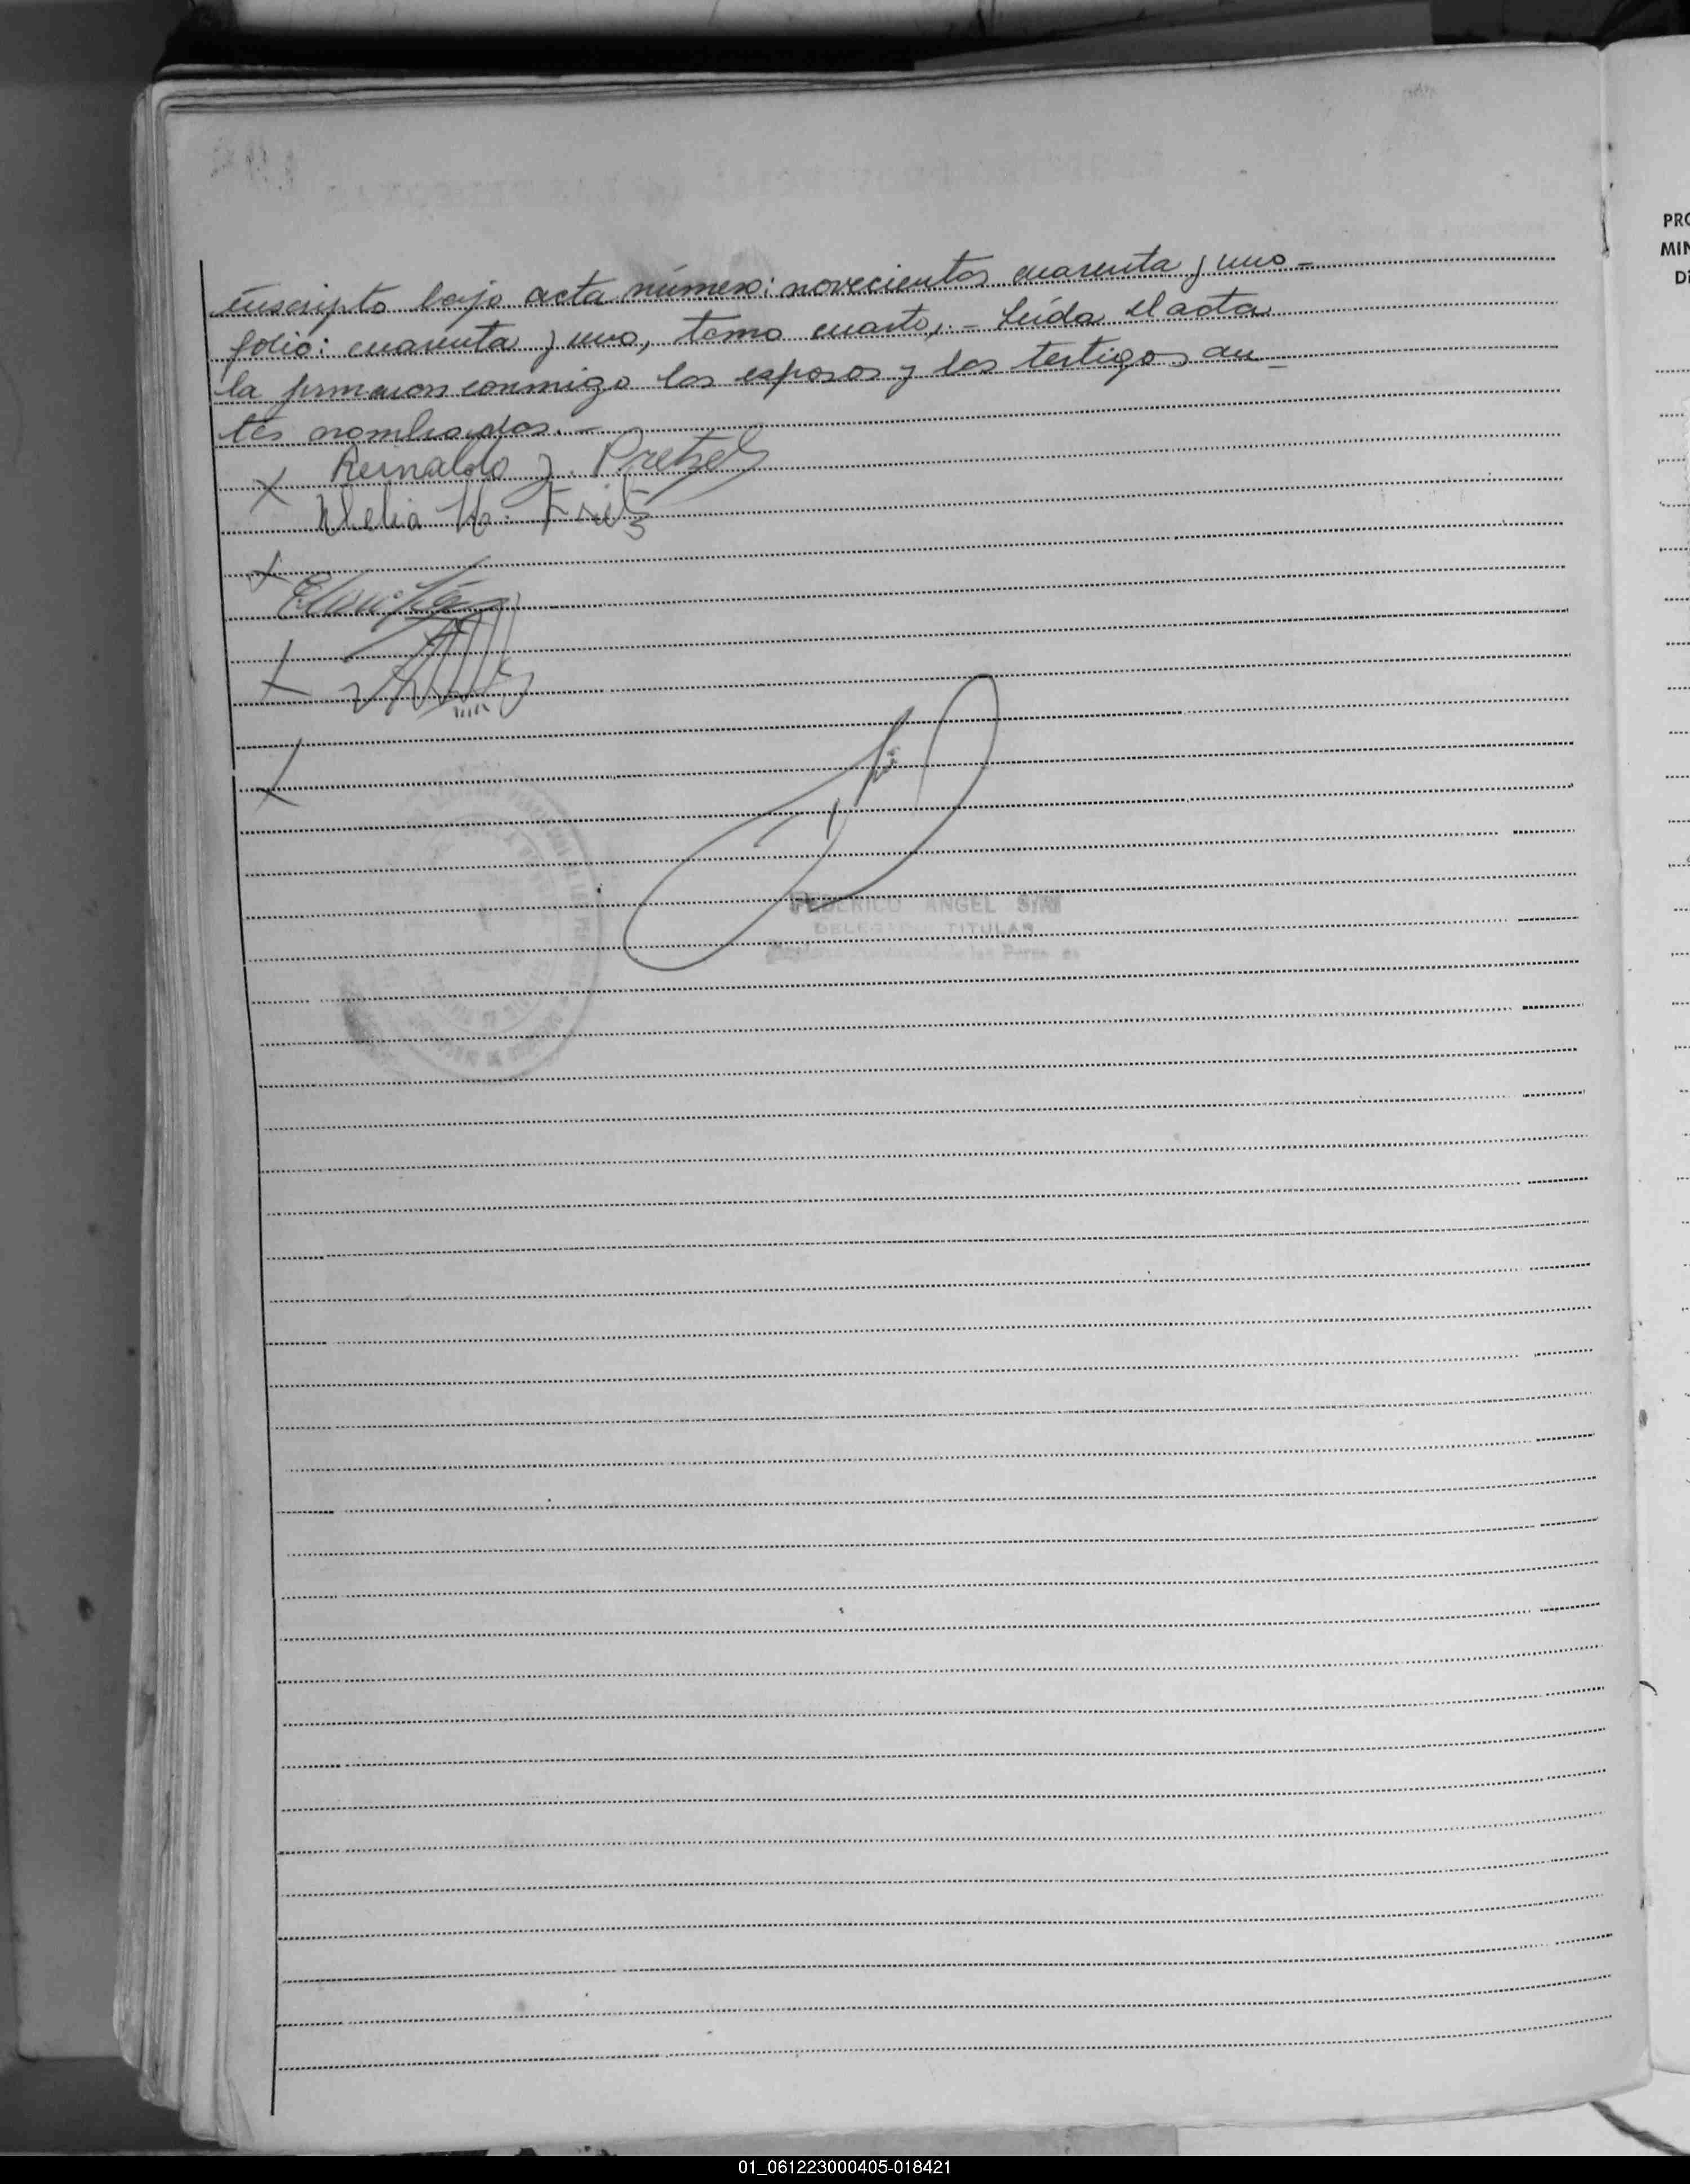 inscripto bajo acta número: novecientos cuarenta y uno -
folio: cuarenta y uno, tomo cuarto, . - Leída el acta
la firmaron conmigo los esposos y los testigos an-
tes nombrados. -
X Reinaldo J. Pretzel
Fritz
X
X
X
FEDERICO ANGEL
DELEGADO TITULAR
PRO
MIN
DI
01_061223000405-018421